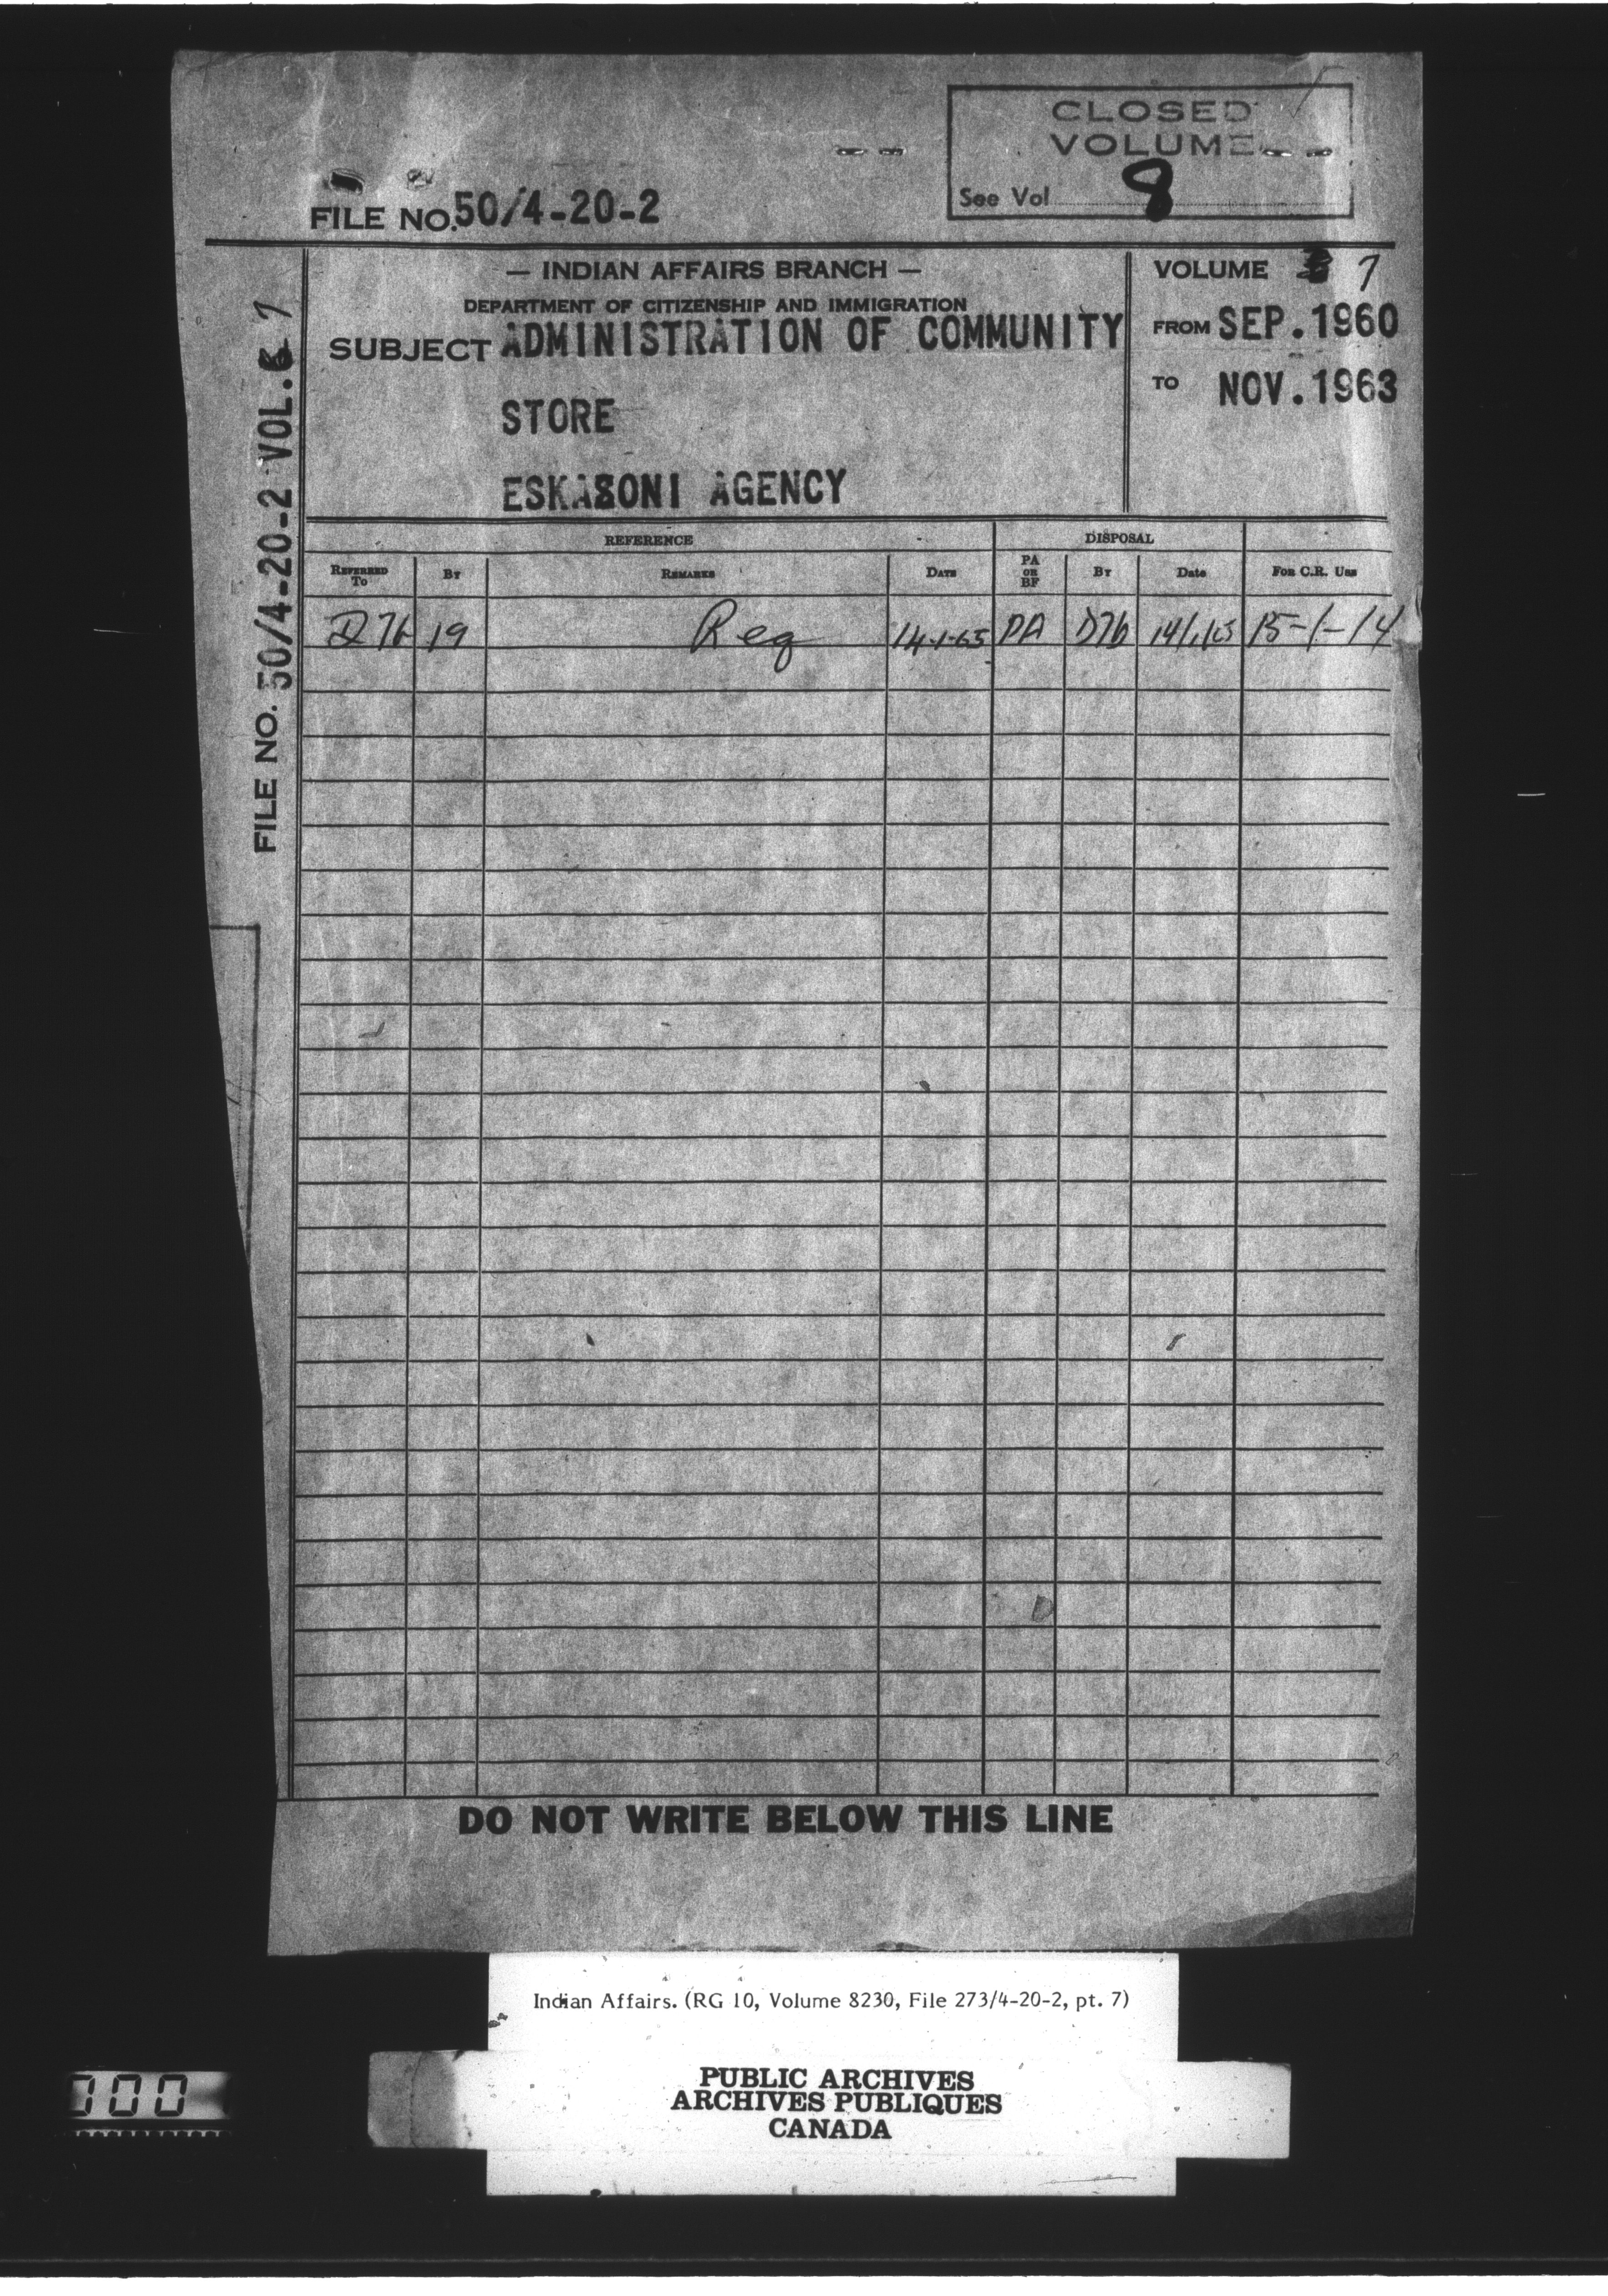 CLOSED
VOLUME
See Vol 8
FILE NO. 50/4-20-2
— INDIAN AFFAIRS BRANCH —
DEPARTMENT OF CITIZENSHIP AND IMMIGRATION
SUBJECT ADMINISTRATION OF COMMUNITY
STORE
ESKASONI AGENCY
VOLUME 7
FROM SEP. 1960
TO NOV. 1963
FILE NO. 50/4-20-2 VOL. 7
REFERENCE DISPOSAL
REFERRED TO BY REMARKS DATE PA OR BF BY Date FOR C.R. USE
D76 19 Req 14-1-65 PA D76 14/1/65 15-1-14
DO NOT WRITE BELOW THIS LINE
Indian Affairs. (RG 10, Volume 8230, File 273/4-20-2, pt. 7)
PUBLIC ARCHIVES
ARCHIVES PUBLIQUES
CANADA